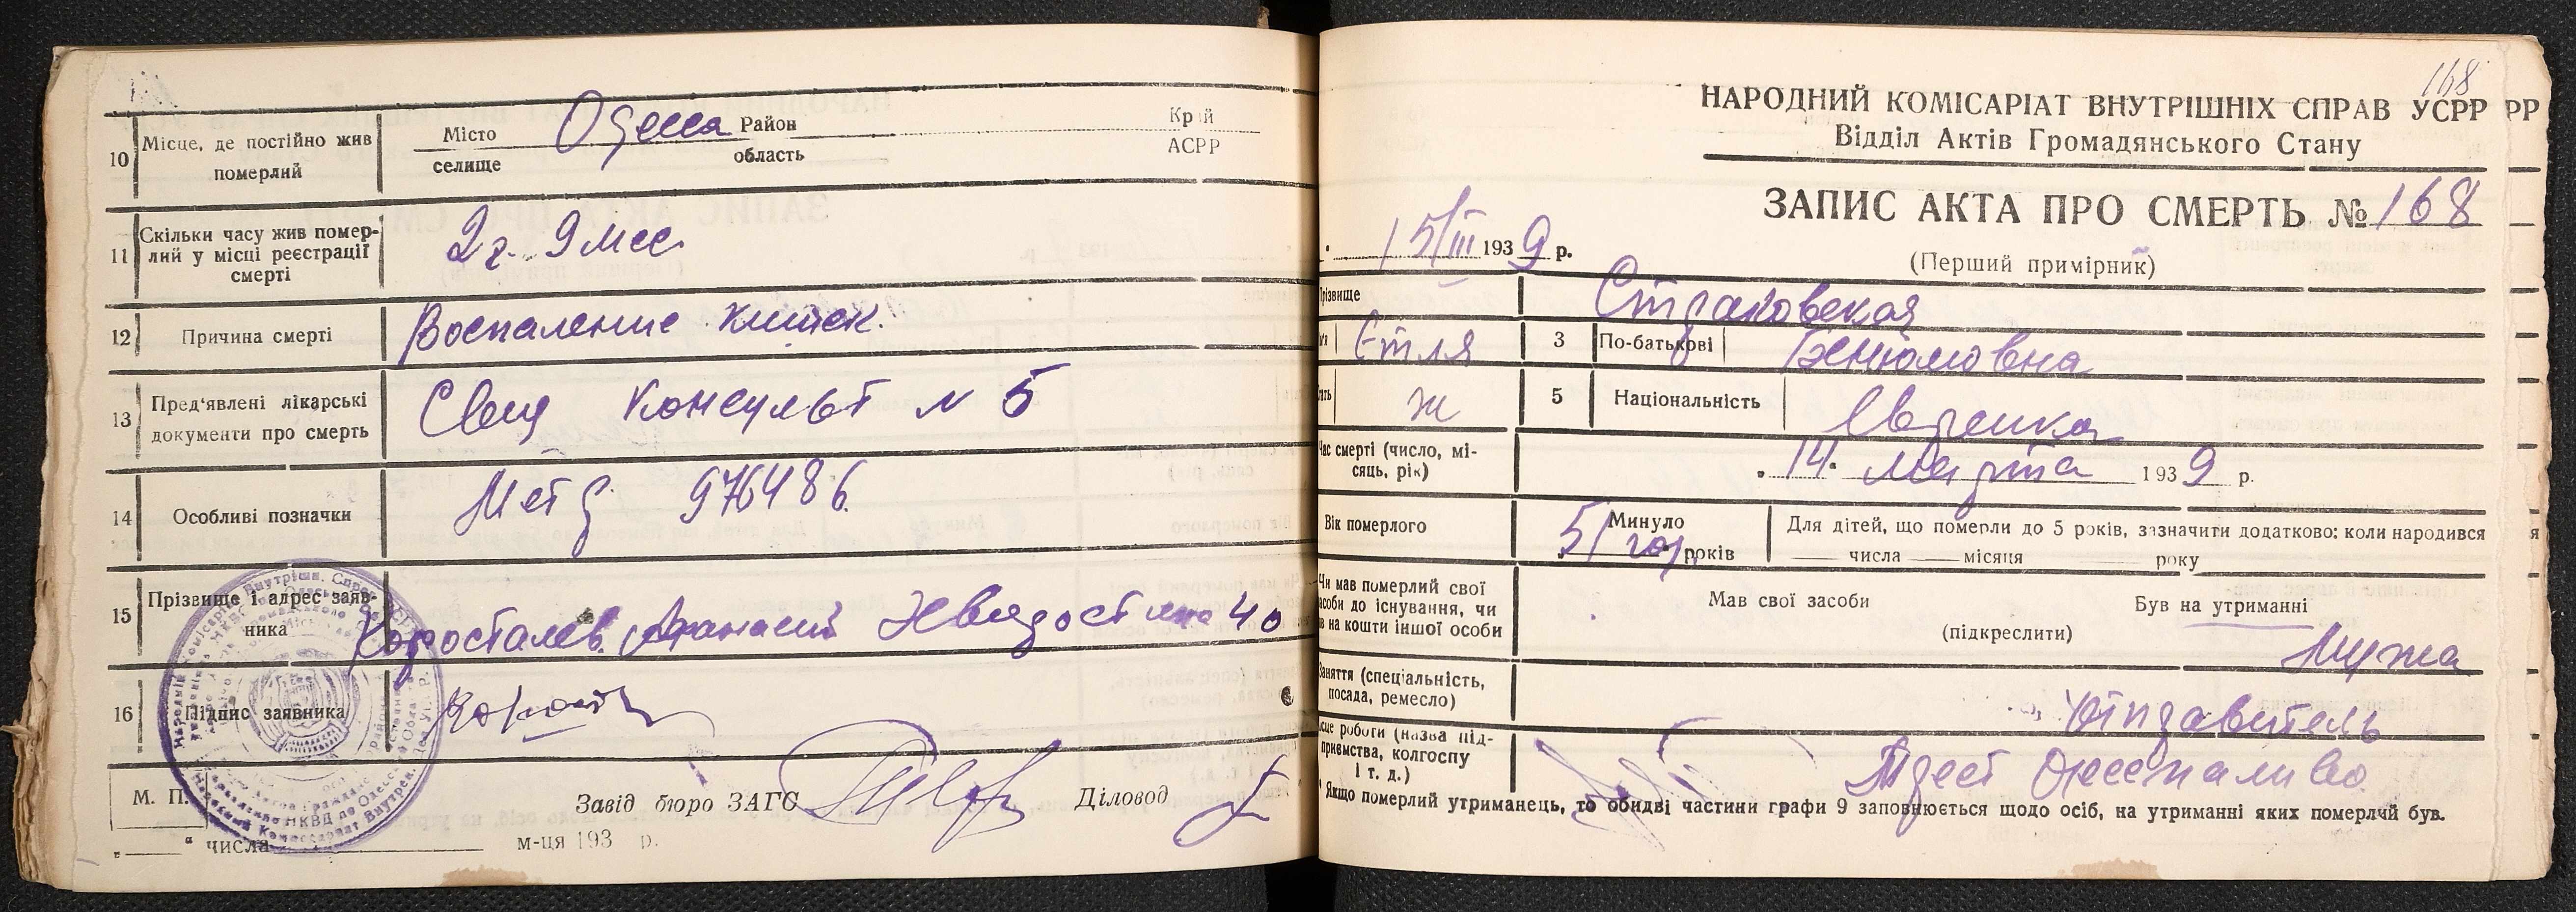 10 Місце, де постійно жив померлий
Місто селище Одесса Район область Край АСРР
11 Скільки часу жив померлий у місці реєстрації смерті
2 г. 9 мес
12 Причина смерті
Воспаление кишек.
13 Пред'явлені лікарські документи про смерть
Консульт N 5
14 Особливі позначки
976486.
15 Прізвище і адрес заявника
Коросталев Афанасий 40
16 Підпис заявника
М. П.
Завід бюро ЗАГС
Діловод
„ “ числа м-ця 193 р.
168
НАРОДНИЙ КОМІСАРІАТ ВНУТРІШНІХ СПРАВ УСРР РР
Відділ Актів Громадянського Стану
ЗАПИС АКТА ПРО СМЕРТЬ № 168
15/III 1939 р.
(Перший примірник)
різвище
Страковская
Етля
3 По-батькові
Бенюмовна
ж
5 Національність
Еврейка
Час смерті (число, місяць, рік)
„ 14 “ марта 1939 р.
Вік померлого
Минуло 51 год років
Для дітей, що померли до 5 років, зазначити додатково: коли народився я
числа місяця року
Чи мав померлий свої
асоби до існування, чи
в на кошти іншої особи
Мав свої засоби
Був на утриманні
(підкреслити)
мужа
Заняття (спеціальність, посада, ремесло)
отправитель
сце роботи (назва підприємства, колгоспу і т. д.)
Трест
Якщо померлий утриманець, то обидві частини графи 9 заповнюється щодо осіб, на утриманні яких померлий був.